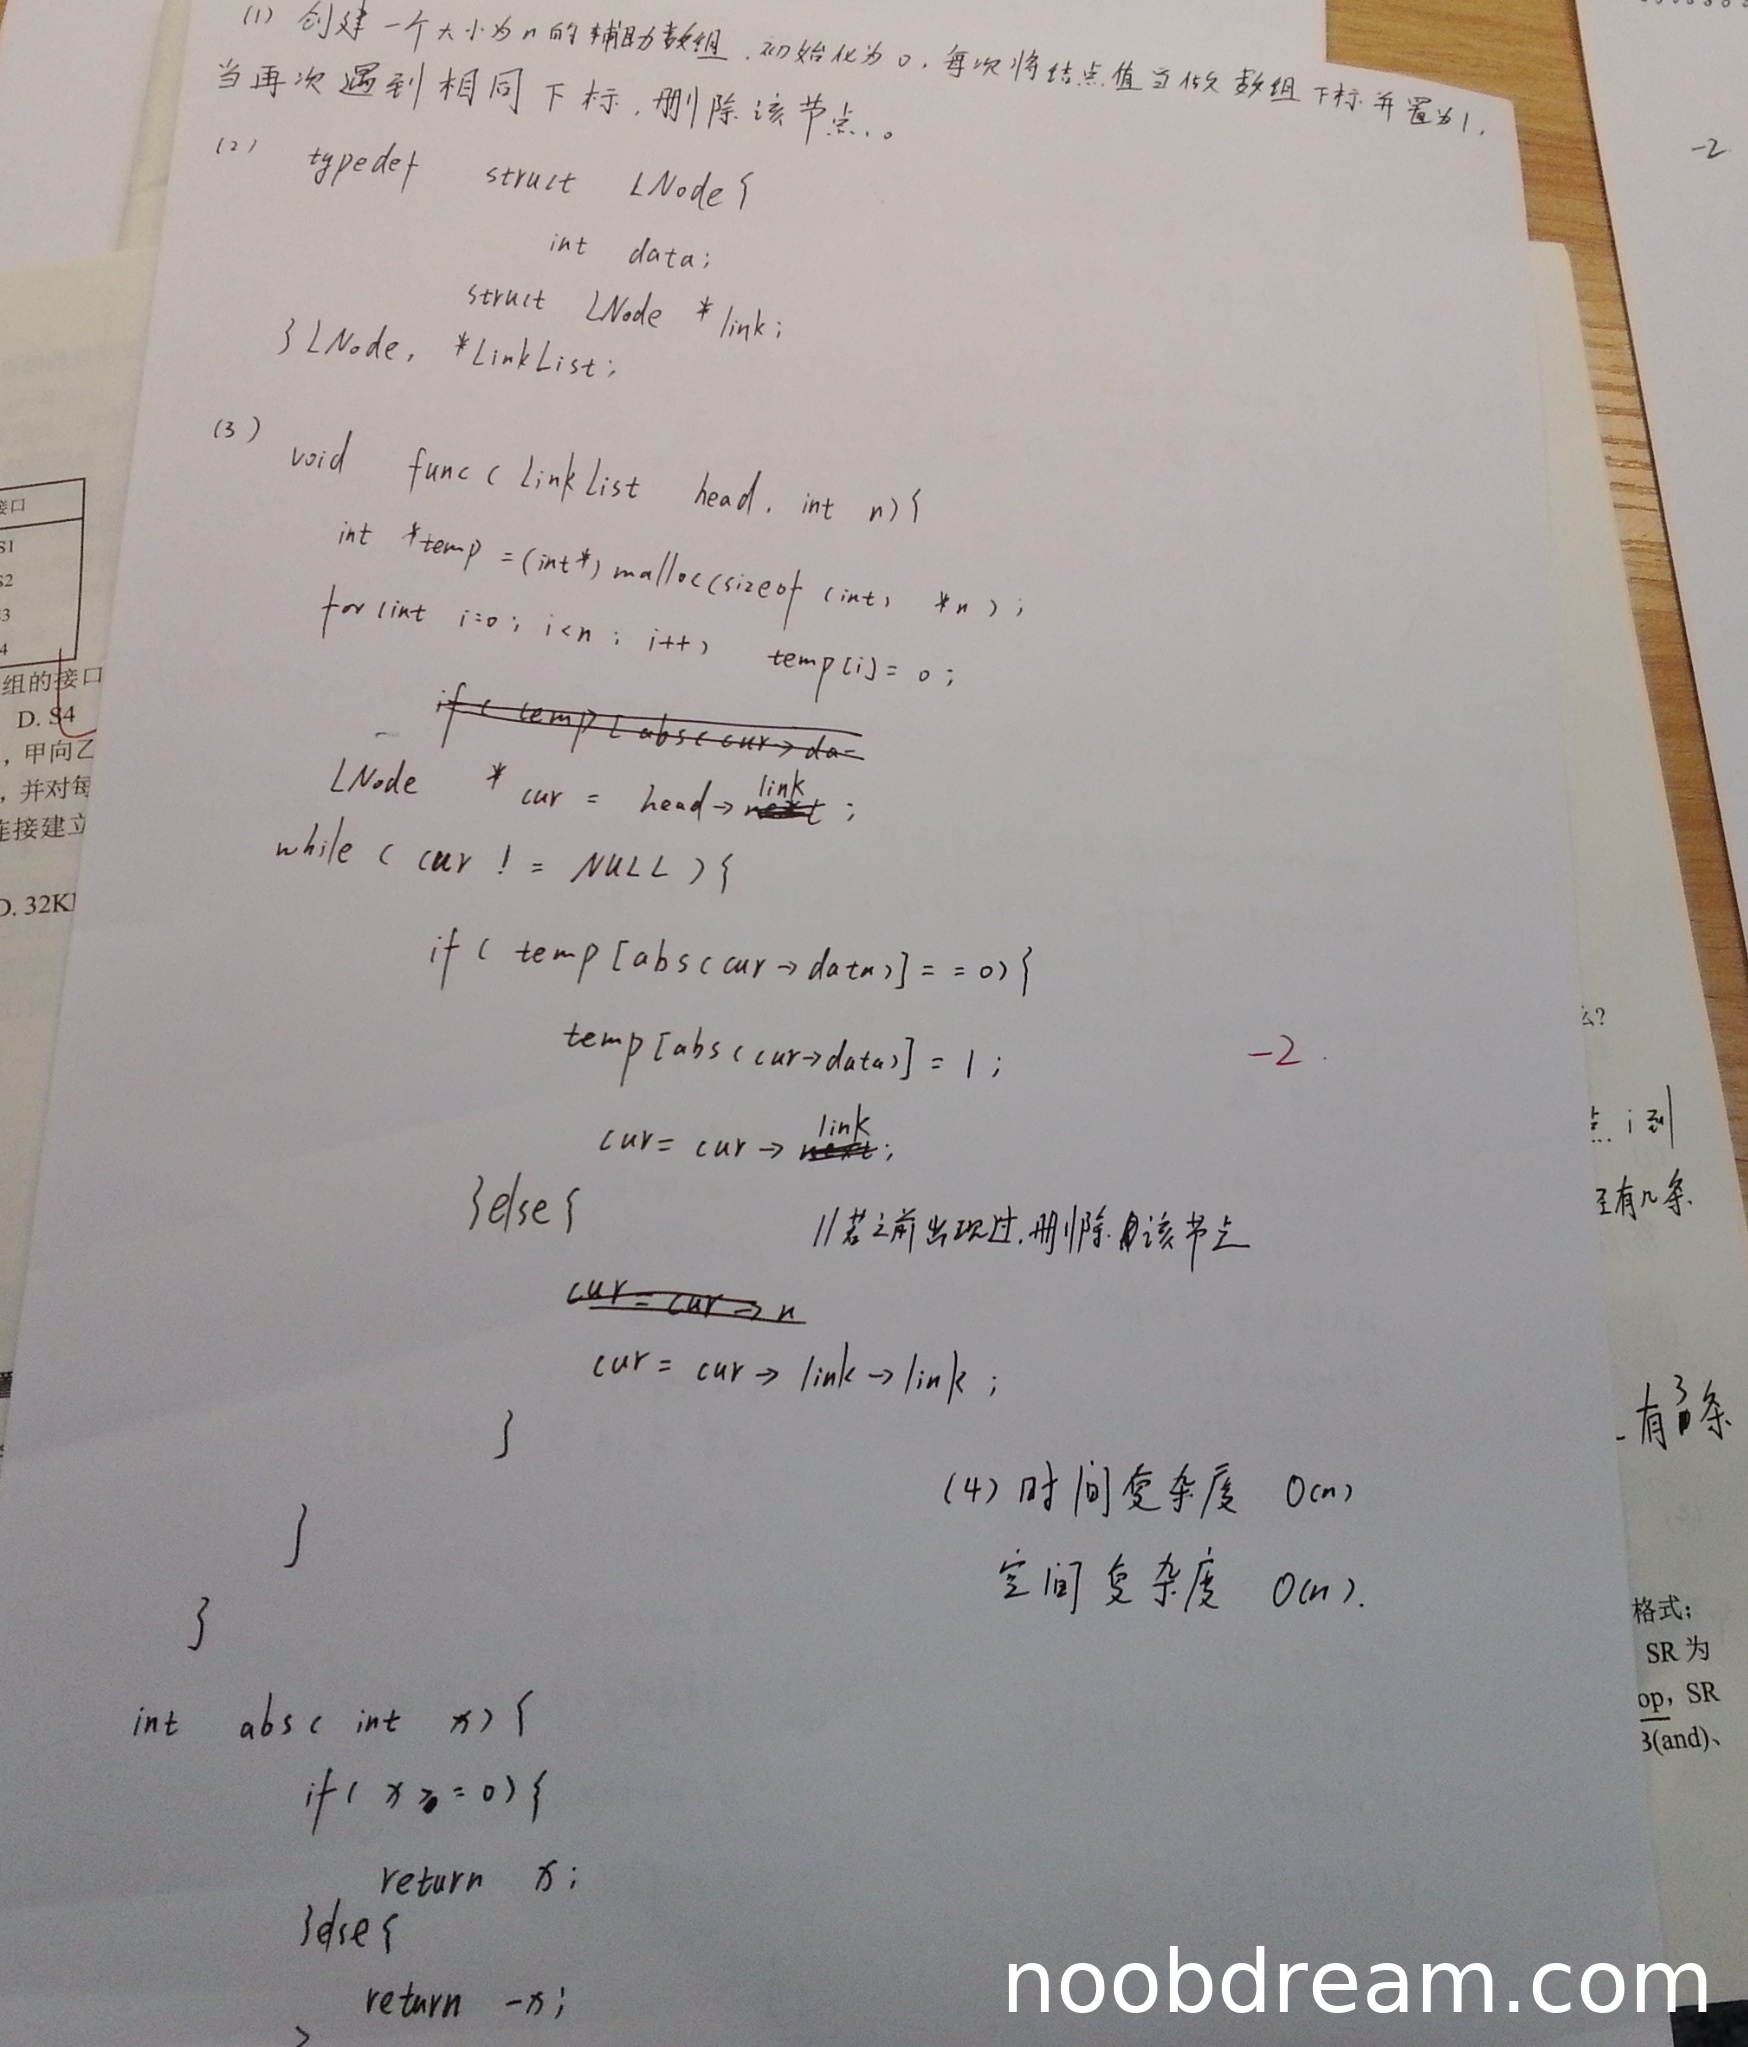 (1) 创建一个大小为n的辅助数组,初始化为0,每次将结点值当做数组下标并置为1,
当再次遇到相同下标,删除该节点。
(2) typedef struct LNode{
int data;
struct LNode *link;
}LNode, *LinkList;
(3) void func(LinkList head, int n){
int *temp=(int*)malloc(sizeof(int) *n);
for(int i=0; i<n; i++) temp[i]=0;
if(temp[abs(cur->da=
LNode *cur = head->link;
while(cur != NULL){
if(temp[abs(cur->data)]==0){
temp[abs(cur->data)]=1;
-2.
cur=cur->link;
}else{ //若之前出现过,删除该节点
cur=cur->n
cur=cur->link->link;
}
}
}
(4) 时间复杂度 O(n)
空间复杂度 O(n).
int abs(int x){
if(x>=0){
return x;
}else{
return -x;
}
接口
S1
S2
S3
4
组的接口
D. S4
,甲向乙
,并对每
连接建立
D. 32K
-2
么?
点i到
至有几条
有3条
格式;
SR 为
op, SR
3(and)、
noobdream.com